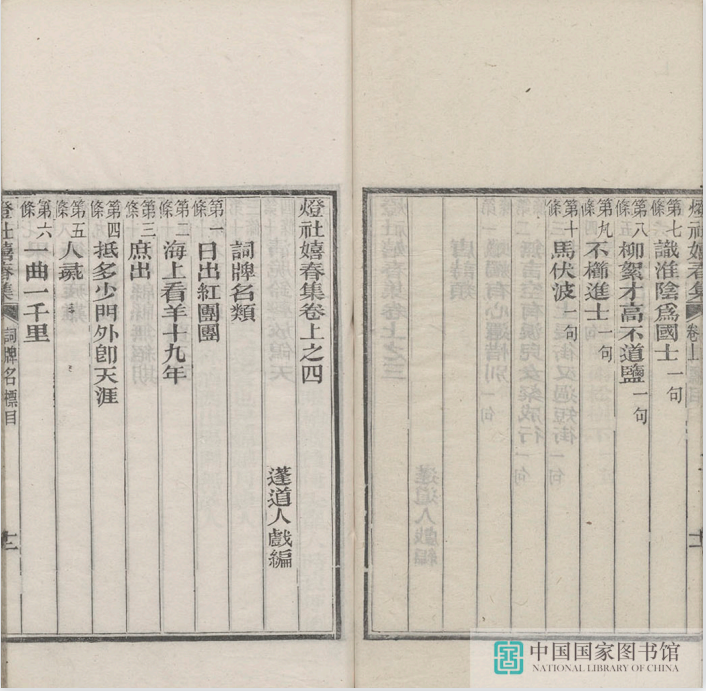 燈社嬉春集 卷上
第七條 識淮陰爲國士 一句
第八條 柳絮才高不道鹽 一句
第九條 不櫛進士 一句
第十條 馬伏波 一句
燈社嬉春集卷上之四
蓬道人戲編
詞牌名類
第一條 日出紅團團
第二條 海上看羊十九年
第三條 庶出
第四條 抵多少門外卽天涯
第五條 人彘
第六條 一曲一千里
燈社嬉春集 詞牌名標目 十二
中国国家图书馆
NATIONAL LIBRARY OF CHINA